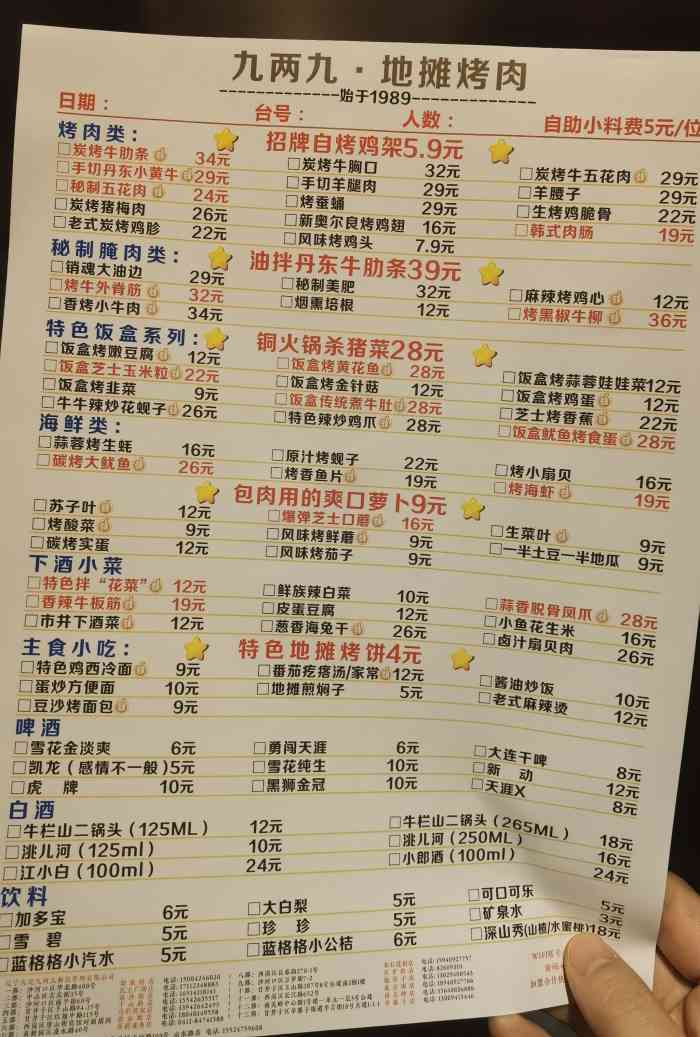 九两九·地摊烤肉
始于1989
日期： 台号： 人数： 自助小料费5元/位
烤肉类： 招牌自烤鸡架5.9元
炭烤牛肋条 34元 炭烤牛胸口 32元 炭烤牛五花肉 29元
手切丹东小黄牛 29元 手切羊腿肉 29元 羊腰子 29元
秘制五花肉 24元 烤蚕蛹 29元 生烤鸡脆骨 22元
炭烤猪梅肉 26元 新奥尔良烤鸡翅 16元 韩式肉肠 19元
老式炭烤鸡胗 22元 风味烤鸡头 7.9元
秘制腌肉类： 油拌丹东牛肋条39元
销魂大油边 29元 秘制美肥 32元 麻辣烤鸡心 12元
烤牛外脊筋 32元 烟熏培根 12元 烤黑椒牛柳 36元
香烤小牛肉 34元
特色饭盒系列： 铜火锅杀猪菜28元
饭盒烤嫩豆腐 12元 饭盒烤黄花鱼 28元 饭盒烤蒜蓉娃娃菜12元
饭盒芝士玉米粒 22元 饭盒烤金针菇 12元 饭盒烤鸡蛋 12元
饭盒烤韭菜 9元 饭盒传统煮牛肚 28元 芝士烤香蕉 22元
牛牛辣炒花蚬子 26元 特色辣炒鸡爪 28元 饭盒鱿鱼烤食蛋 28元
海鲜类：
蒜蓉烤生蚝 16元 原汁烤蚬子 22元 烤小扇贝 16元
碳烤大鱿鱼 26元 烤香鱼片 19元 烤海虾 19元
包肉用的爽口萝卜9元
苏子叶 12元 爆弹芝士口蘑 16元 生菜叶 9元
烤酸菜 9元 风味烤鲜蘑 9元 一半土豆一半地瓜 9元
碳烤实蛋 12元 风味烤茄子 9元
下酒小菜
特色拌“花菜” 12元 鲜族辣白菜 10元 蒜香脱骨凤爪 28元
香辣牛板筋 19元 皮蛋豆腐 12元 小鱼花生米 16元
市井下酒菜 12元 葱香海兔干 26元 卤汁扇贝肉 26元
主食小吃： 特色地摊烤饼4元
特色鸡西冷面 9元 番茄疙瘩汤/家常 12元 酱油炒饭 10元
蛋炒方便面 10元 地摊煎焖子 5元 老式麻辣烫 12元
豆沙烤面包 9元
啤酒
雪花金淡爽 6元 勇闯天涯 6元 大连干啤 8元
凯龙（感情不一般）5元 雪花纯生 10元 新 动 12元
虎 牌 10元 黑狮金冠 10元 天涯X 8元
白酒
牛栏山二锅头（125ML） 12元 牛栏山二锅头（265ML） 18元
洮儿河（125ml） 10元 洮儿河（250ML） 16元
江小白（100ml） 24元 小郎酒（100ml） 24元
饮料
加多宝 6元 大白梨 5元 可口可乐 5元
雪 碧 5元 珍 珍 5元 矿泉水 3元
蓝格格小汽水 5元 蓝格格小公桔 6元 深山秀(山楂/水蜜桃)18元